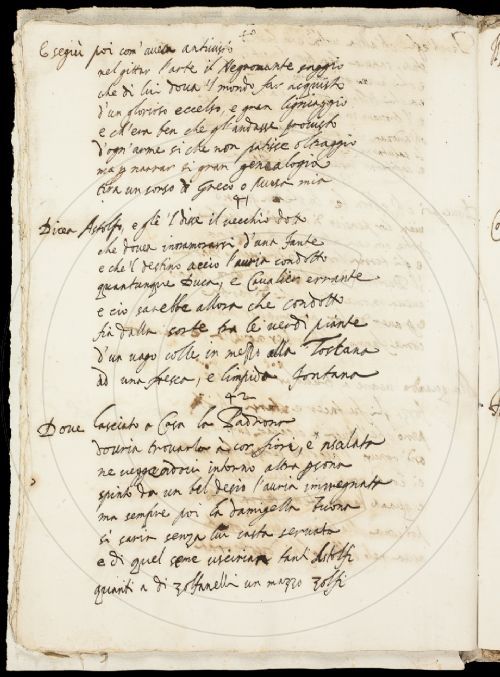 40
E seguì poi com' avea antivisto
nel gittar l'arte il Negromante saggio
che di lui dovea 'l mondo far acquisto
d'un glorioso eccelso, e gran lignaggio
e ch'era ben che gl'andasse provisto
d'ogn'arme sì che non patisce oltraggio
ma p narrar sì gran genealogia
tira un sorso di Greco o Musa mia
41
Dicea Astolfo, e gle 'l disse il vecchio dotto
che dovea innamorarsi d'una fante
e che 'l destino acciò l'avria condotto
quantunque Duca, e Cavalier errante
e ciò sarebbe allora che condotto
fia dalla sorte tra le verdi piante
d'un vago colle in mezzo alla Toscana
ad una fresca, e limpida fontana
42
Dove lasciato a Casa la Padrona
dovria trovarla a cor fiori, e nsalata
ne veggendovi intorno altra psona
spinto da un bel desio l'avria impregnata
ma sempre poi la damigella buona
si saria senza lui casta servata
e di quel seme uscirian tanti Astolfi
quanti a di zolfanelli un mazzo zolfi